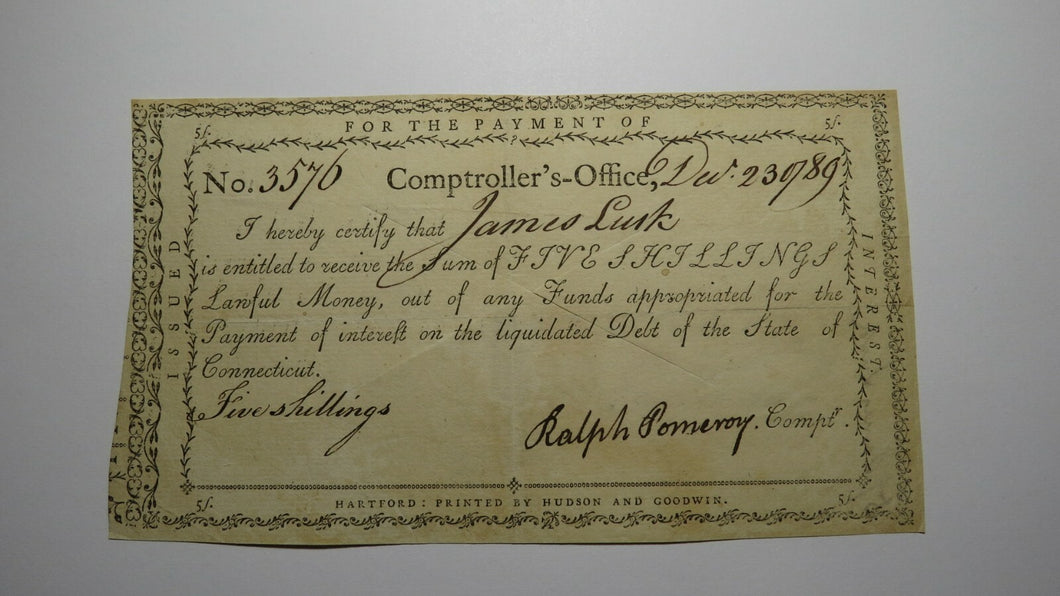 5/. FOR THE PAYMENT OF 5/.
No. 3576 Comptroller's-Office, Decr. 23 1789
I hereby certify that James Lusk
is entitled to receive the Sum of FIVE SHILLINGS
Lawful Money, out of any Funds appropriated for the
Payment of intereſt on the liquidated Debt of the State of
Connecticut.
Five shillings
Ralph Pomeroy. Comptr.
ISSUED
INTEREST.
5/. HARTFORD: PRINTED BY HUDSON AND GOODWIN. 5/.